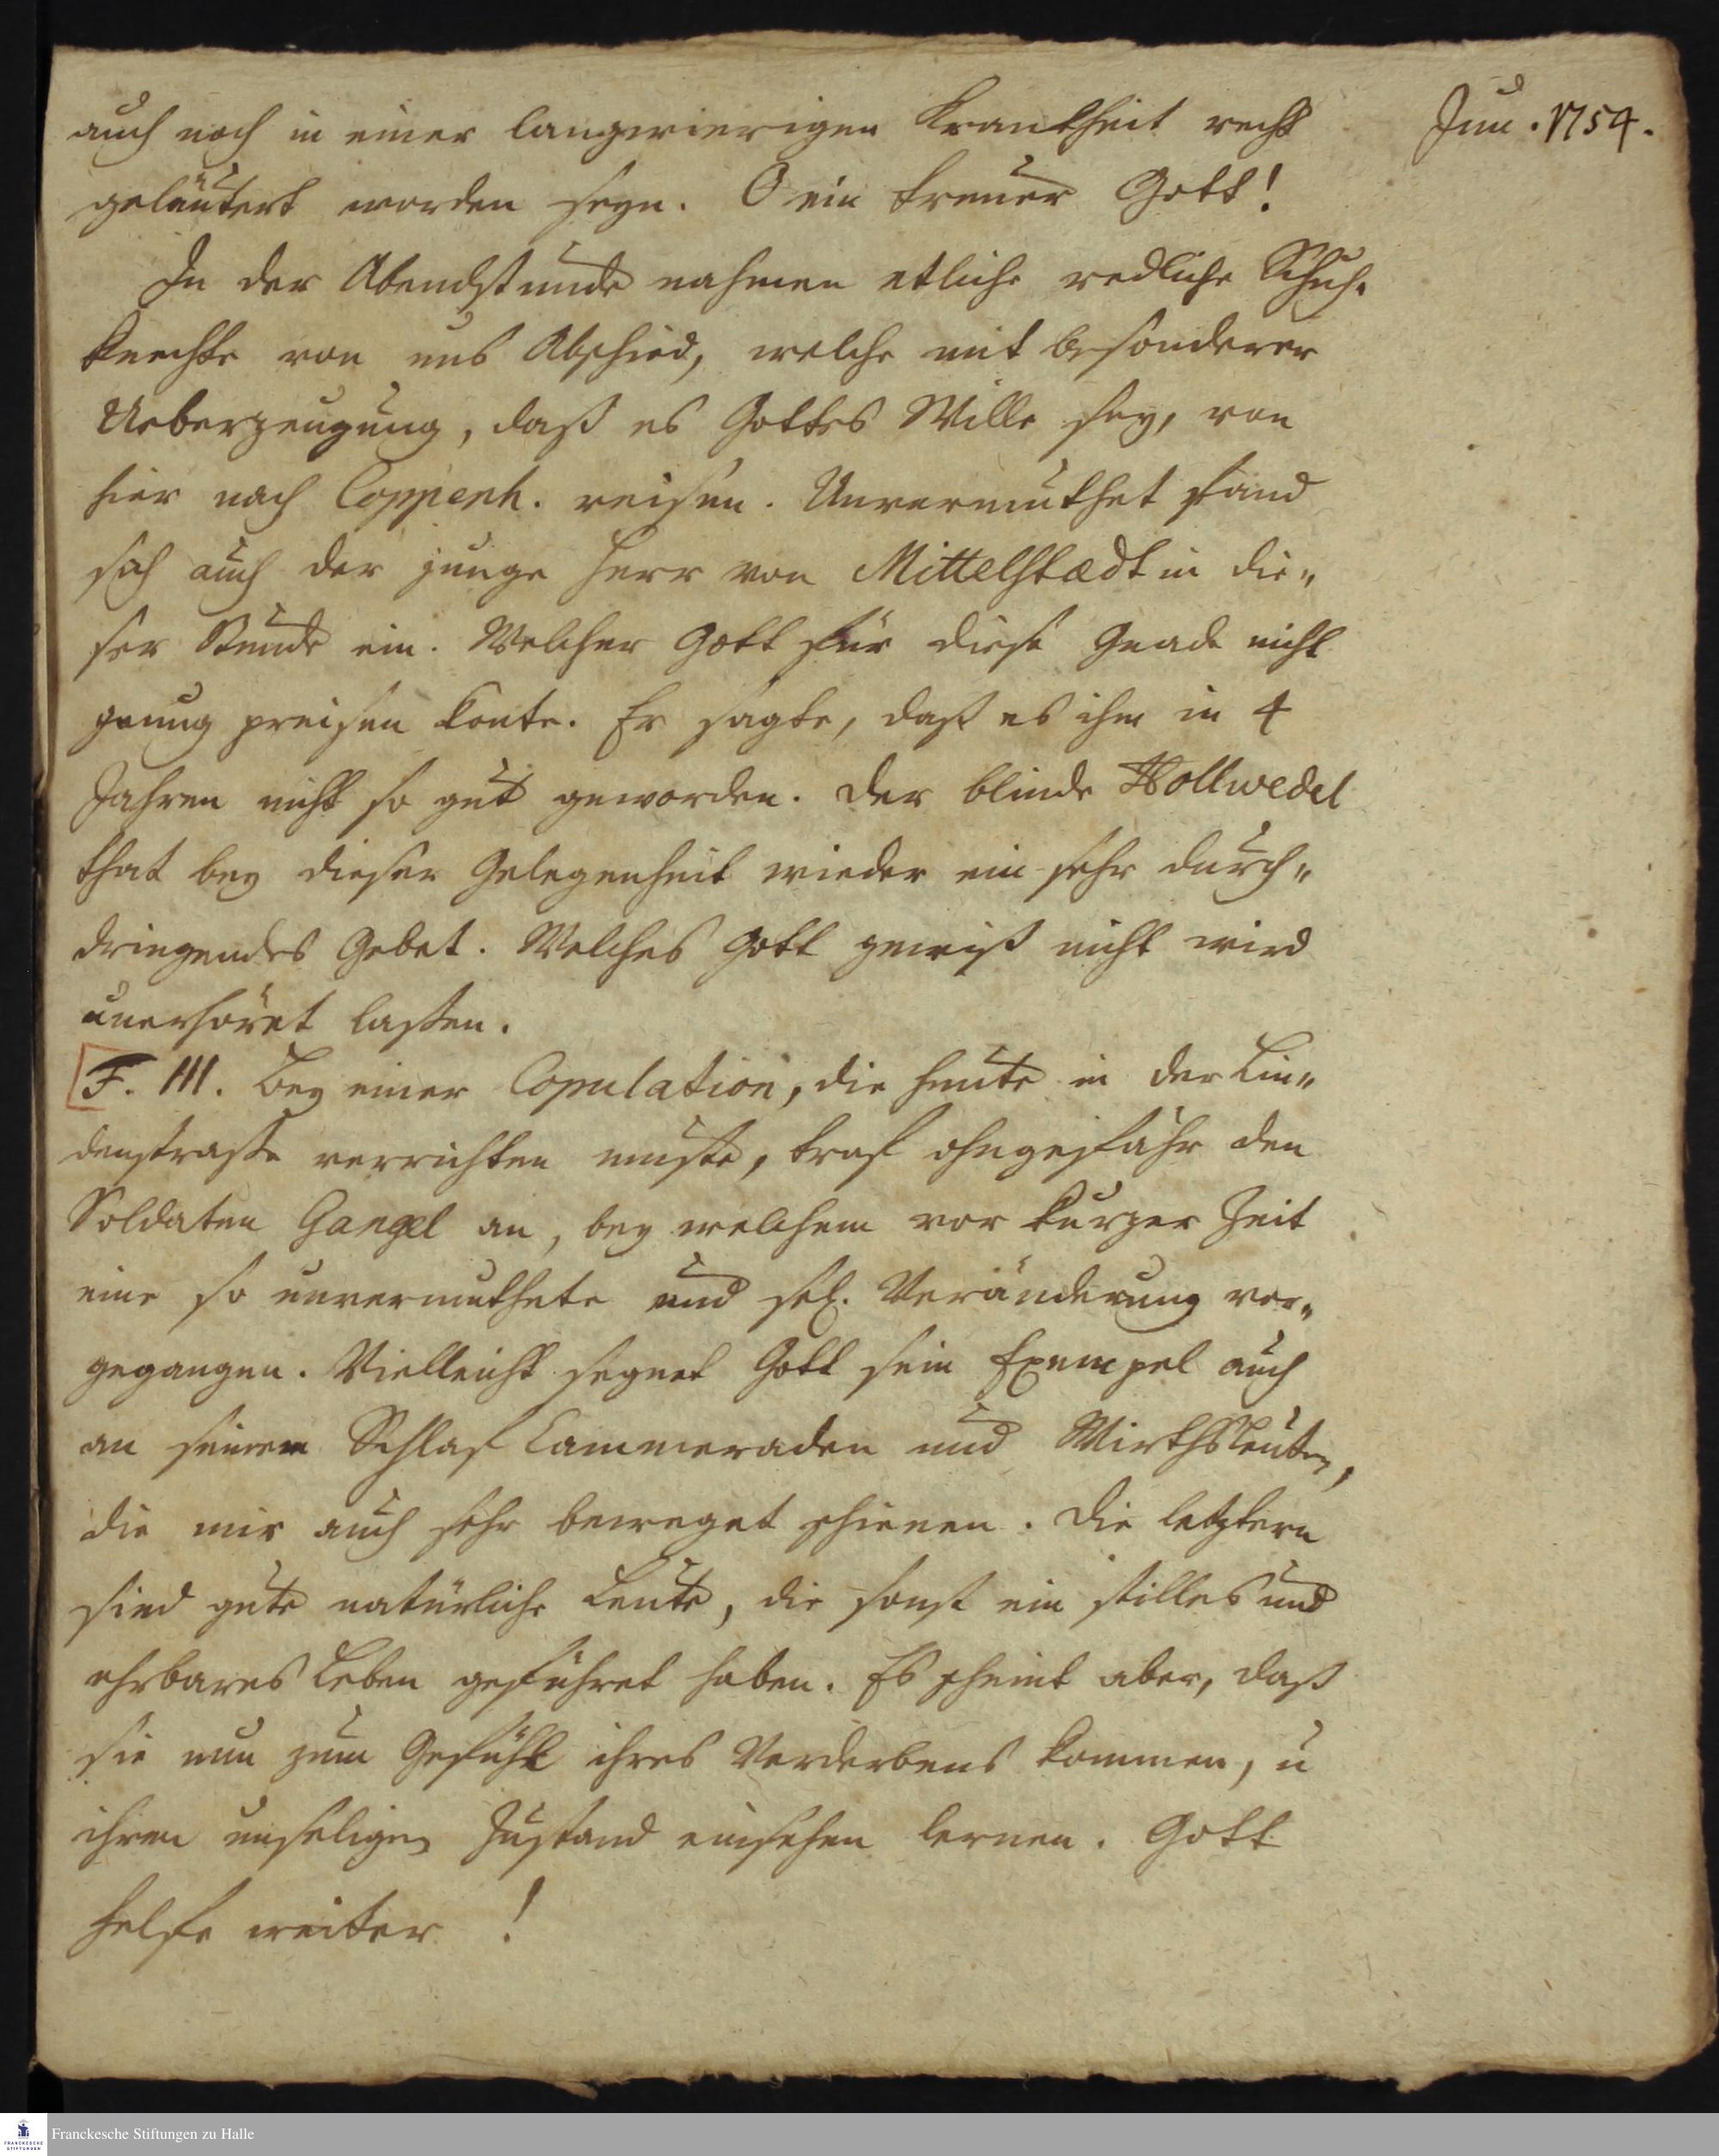 Jun. 1754.
auch noch in einer langwierigen Krankheit recht
geläutert worden seyn. O ein treuer Gott!
In der Abendstunde nahmen etliche redliche Schuh-
knechte von uns Abschied, welche mit besonderer
Ueberzeugung, daß es Gottes Wille sey, von
hier nach Coppenh. reisen. Unvermuthet fand
sich auch der junge Herr von Mittelstædt in die„
ser Stunde ein. Welcher Gott für diese Gnade nicht
genug preisen konte. Er sagte, daß es ihm in 4
Jahren nicht so gut geworden. Der blinde Hollwedel
that bey dieser Gelegenheit wieder ein sehr durch„
dringendes Gebet. Welches Gott gewiß nicht wird
unerhöret lassen.
F. III. Bey einer Copulation, die heute in der Lin„
denstrasse verrichten muste, traf ohngefähr den
Soldaten Gangel an, bey welchem vor kurzer Zeit
eine so unvermuthete und sel. Veränderung vor„
gegangen. Vielleicht segnet Gott sein Exempel auch
an seinem Schlaf Cammeraden und Wirthsleuten,
die mir auch sehr beweget schienen. Die letztern
sind gute natürliche Leute, die sonst ein stilles und
ehrbares Leben geführet haben. Es scheint aber, daß
sie nun zum Gefühl ihres Verderbens kommen, u
ihren unseligen Zustand einsehen lernen. Gott
helfe weiter !
Franckesche Stiftungen zu Halle